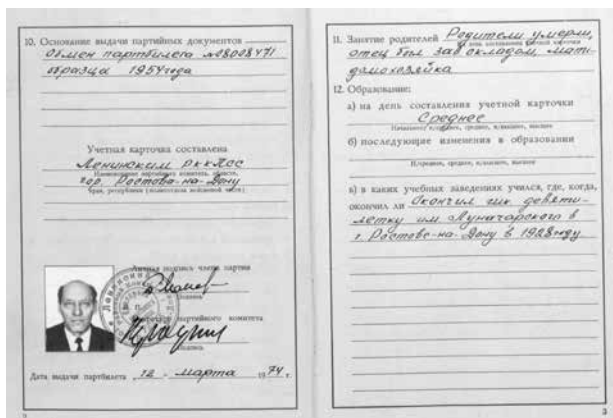 10. Основание выдачи партийных документов
Обмен партбилета №08008471
образца 1954 года
Учетная карточка составлена
Ленинским РК КПСС
Наименование партийного комитета, области,
гор. Ростова-на-Дону
края, республики (политотдела войсковой части)
Личная подпись члена партии
подпись
Секретарь партийного комитета
подпись
Дата выдачи партбилета 12 - марта 1974 г.
2
11. Занятие родителей Родители умерли,
на день составления учетной карточки
отец был зав складом, мать-
домохозяйка
12. Образование:
а) на день составления учетной карточки
Среднее
Начальное, н/среднее, среднее, н/высшее, высшее
б) последующие изменения в образовании
Н/среднее, среднее, н/высшее, высшее
в) в каких учебных заведениях учился, где, когда,
окончил ли Окончил девяти-
летку им Луначарского в
г. Ростове-на-Дону в 1928 году
3